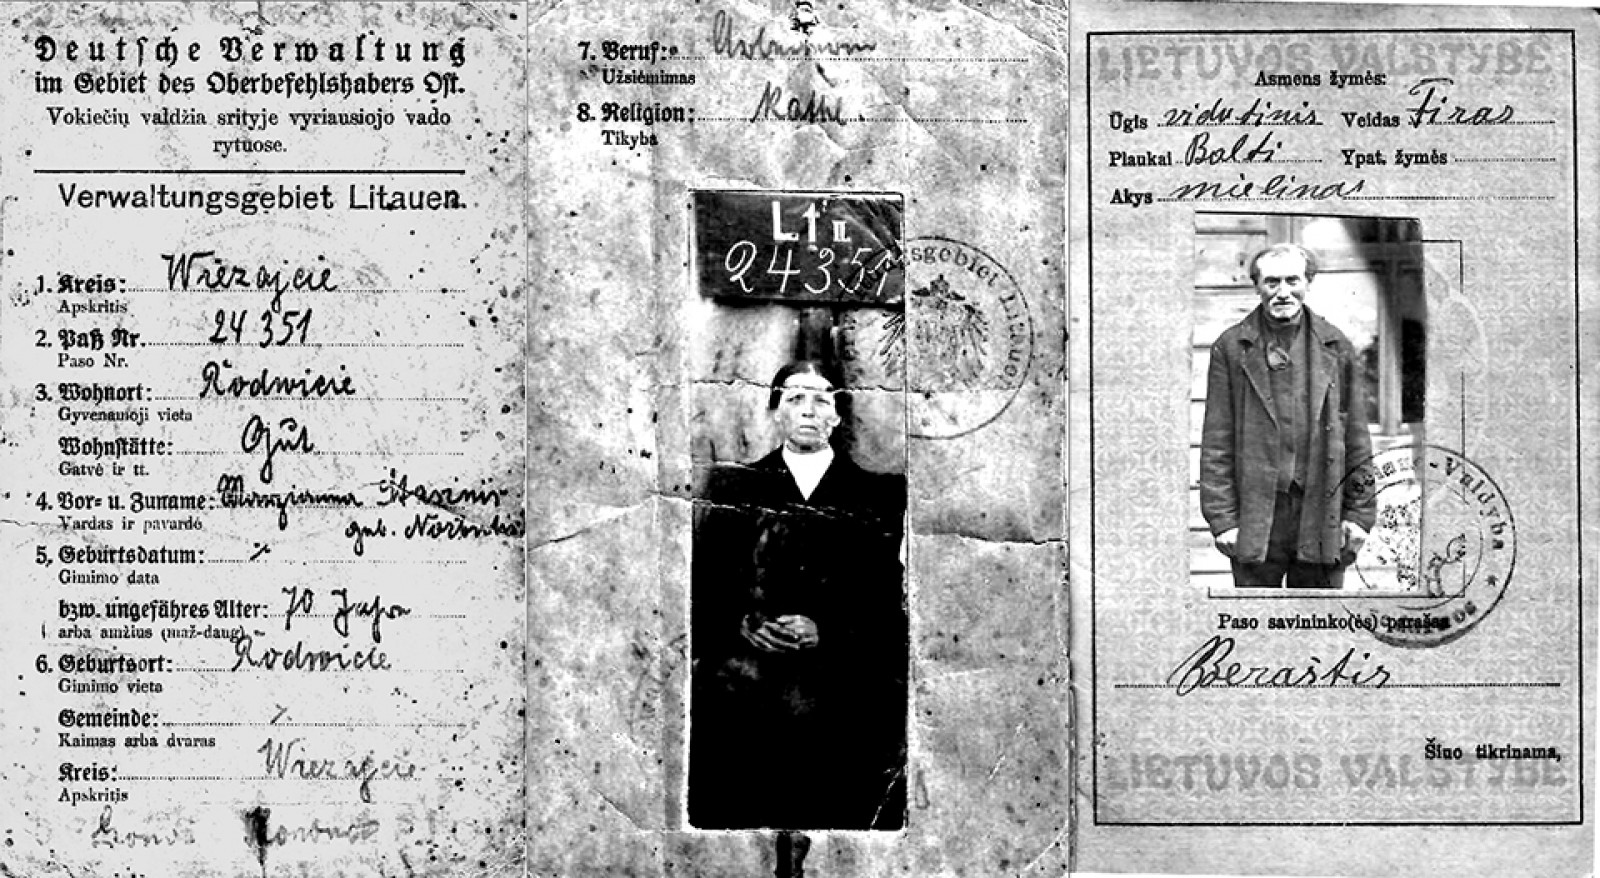 Deutsche Verwaltung
im Gebiet des Oberbefehlshabers Ost.
Vokiečių valdžia srityje vyriausiojo vado
rytuose.
Verwaltungsgebiet Litauen.
1. Kreis: Wiezajcie
Apskritis
2. Paß Nr. 24 351
Paso Nr.
3. Wohnort: Rodwicie
Gyvenamoji vieta
Wohnstätte: Gut
Gatvė ir tt.
4. Vor- u. Zuname:
Vardas ir pavardė
geb.
5. Geburtsdatum:
Gimimo data
bzw. ungefähres Alter: 70 Jahre
arba amžius (maž-daug)
6. Geburtsort: Rodwicie
Gimimo vieta
Gemeinde:
Kaimas arba dvaras
Kreis: Wiezajcie
Apskritis
7. Beruf:
Užsiėmimas
8. Religion: Kath.
Tikyba
Lt II
24351
sgebiet Litauen
LIETUVOS VALSTYBĖ
Asmens žymės:
Ūgis vidutinis Veidas Tiras
Plaukai Balti Ypat. žymės
Akys mielinas
Valdyba
Paso savininko(ės) parašas
Beraštis
Šiuo tikrinama,
LIETUVOS VALSTYBĖ